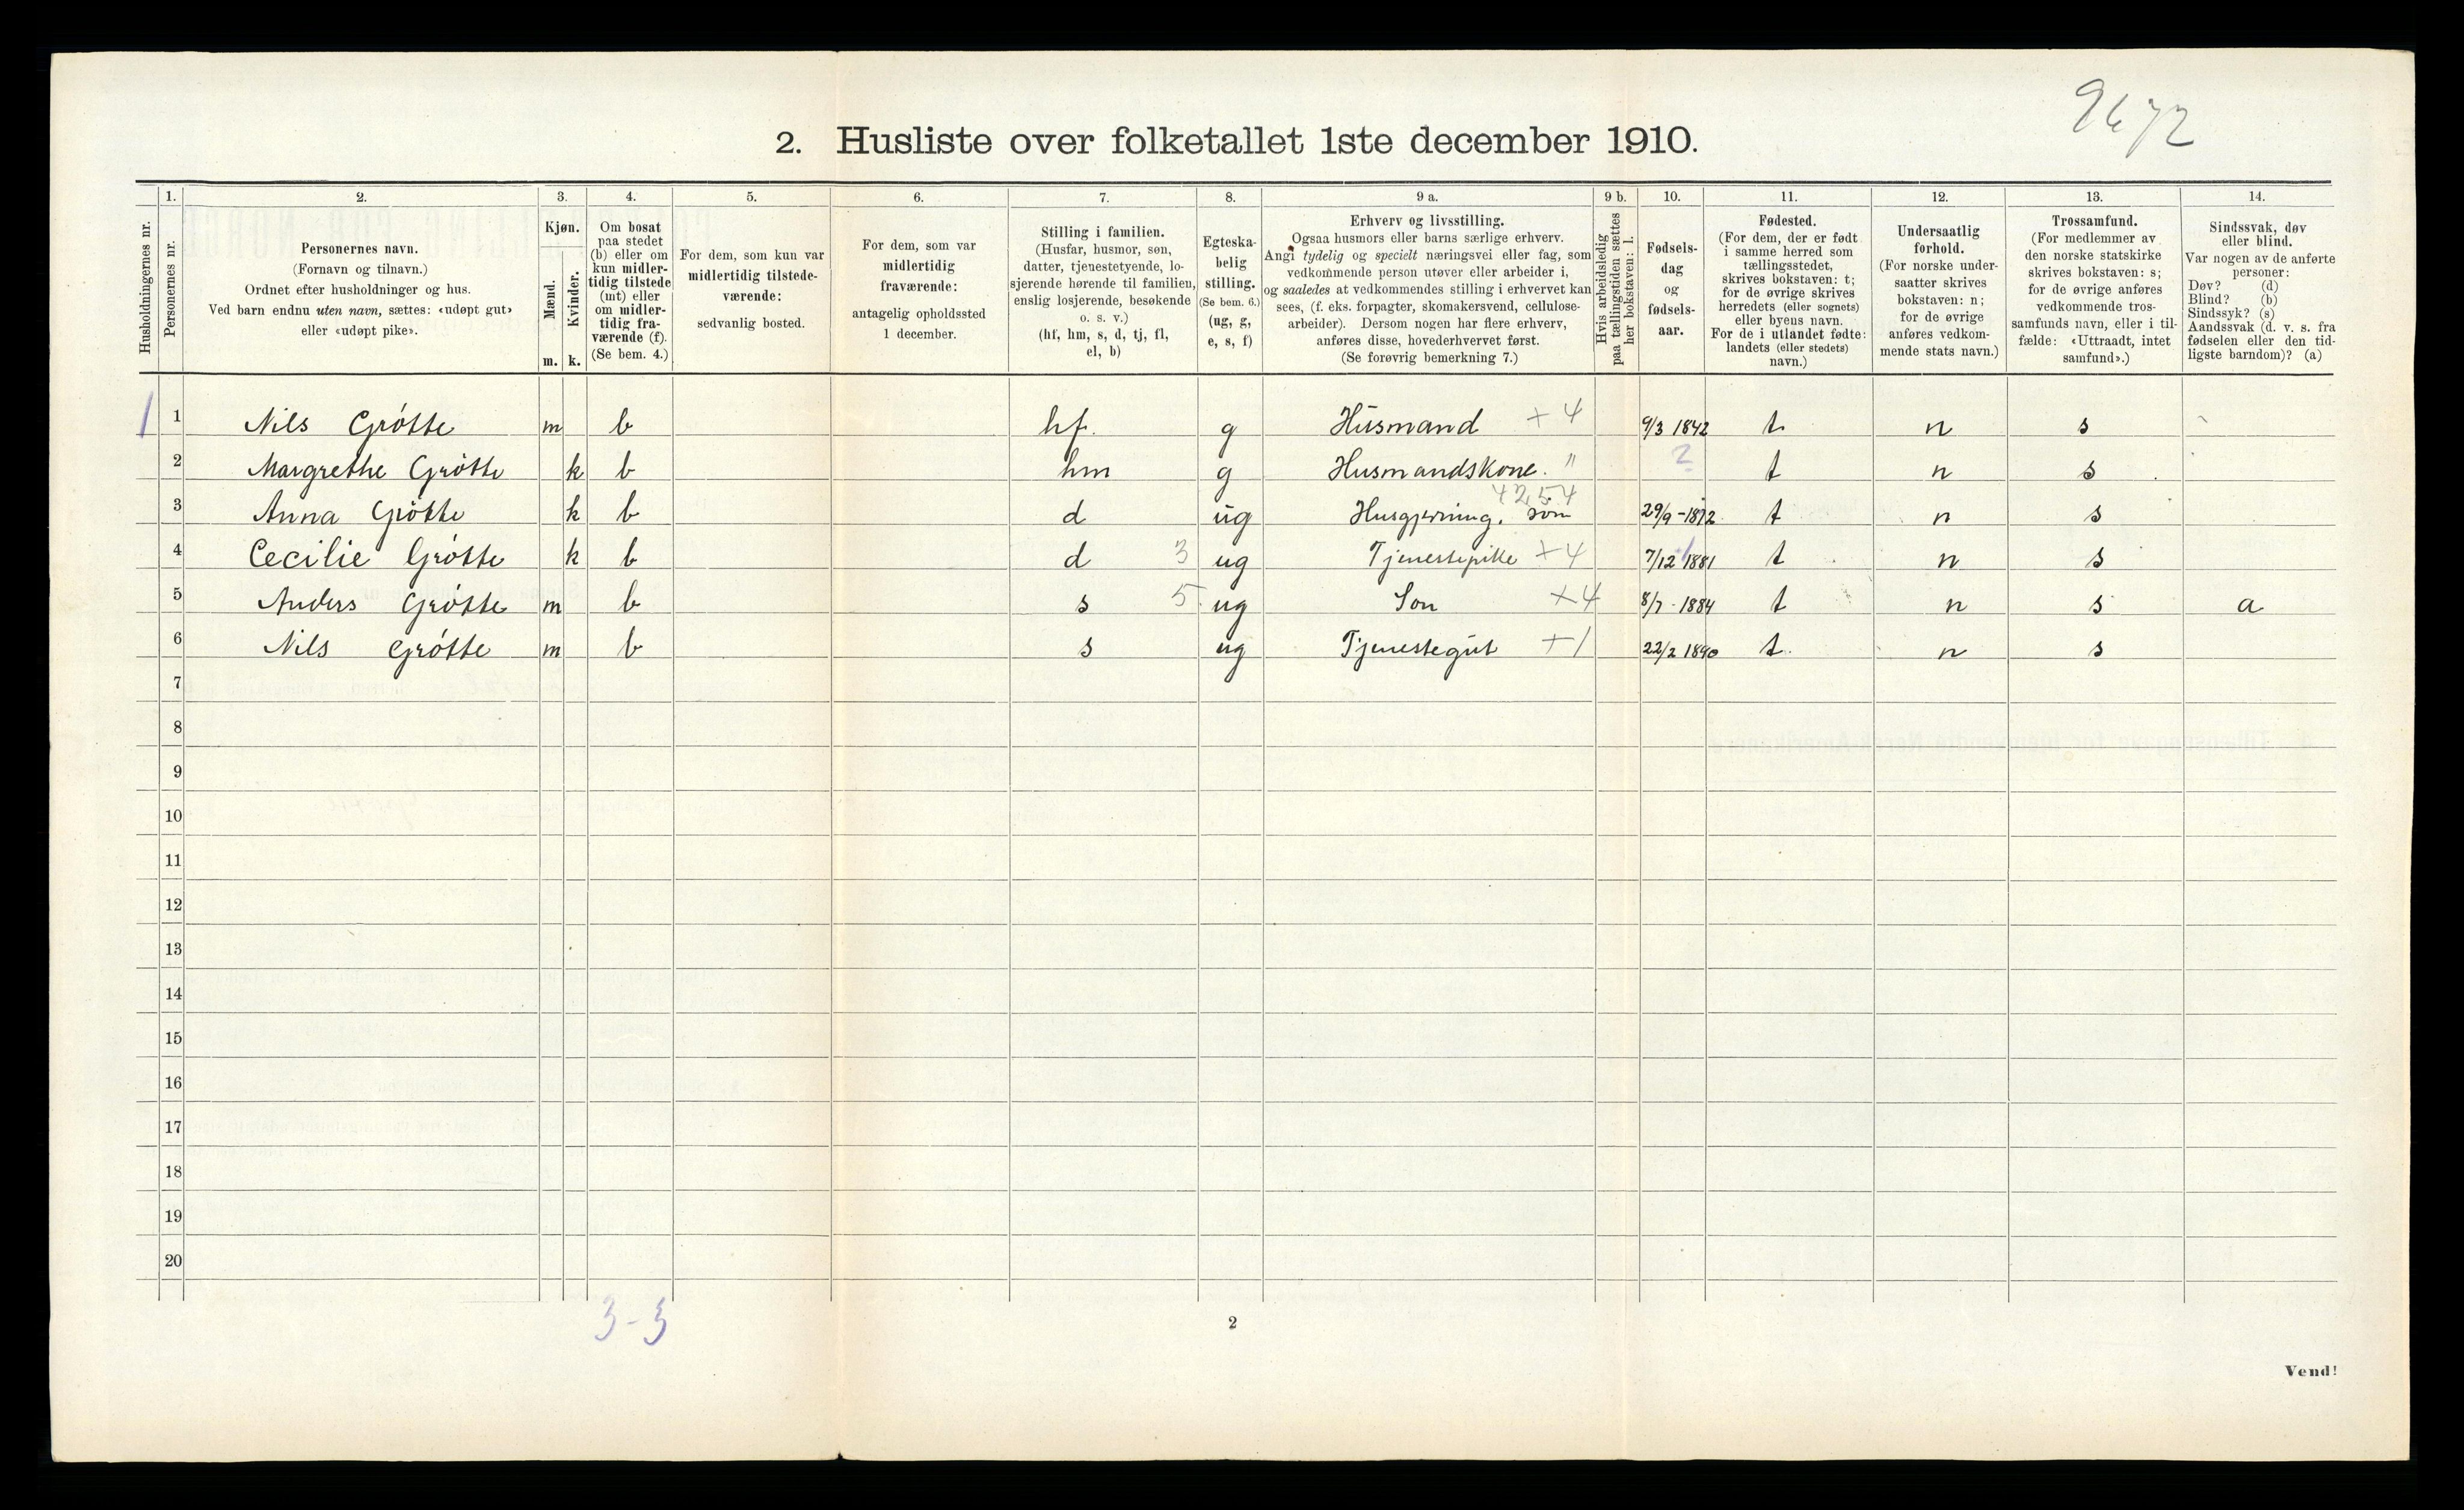 9672
2. Husliste over folketallet 1ste december 1910.
Husholdningernes nr.
1.
Personernes nr.
2.
Personernes navn.
(Fornavn og tilnavn.)
Ordnet efter husholdninger og hus.
Ved barn endnu uten navn, sættes: «udøpt gut»
eller «udøpt pike».
3.
Kjøn.
Mænd.
Kvinder.
m. k.
4.
Om bosat
paa stedet
(b) eller om
kun midler-
tidig tilstede
(mt) eller
om midler-
tidig fra-
værende (f).
(Se bem. 4.)
5.
For dem, som kun var
midlertidig tilstede-
værende:
sedvanlig bosted.
6.
For dem, som var
midlertidig
fraværende:
antagelig opholdssted
1 december.
7.
Stilling i familien.
(Husfar, husmor, søn,
datter, tjenestetyende, lo-
sjerende hørende til familien,
enslig losjerende, besøkende
o. s. v.)
(hf, hm, s, d, tj, fl,
el, b)
8.
Egteska-
belig
stilling.
(Se bem. 6.)
(ug, g,
e, s, f)
9 a.
Erhverv og livsstilling.
Ogsaa husmors eller barns særlige erhverv.
Angi tydelig og specielt næringsvei eller fag, som
vedkommende person utøver eller arbeider i,
og saaledes at vedkommendes stilling i erhvervet kan
sees, (f. eks. forpagter, skomakersvend, cellulose-
arbeider). Dersom nogen har flere erhverv,
anføres disse, hovederhvervet først.
(Se forøvrig bemerkning 7.)
9 b.
Hvis arbeidsledig
paa tællingstiden sættes
her bokstaven: l.
10.
Fødsels-
dag
og
fødsels-
aar.
11.
Fødested.
(For dem, der er født
i samme herred som
tællingsstedet,
skrives bokstaven: t;
for de øvrige skrives
herredets (eller sognets)
eller byens navn.
For de i utlandet fødte:
landets (eller stedets)
navn.)
12.
Undersaatlig
forhold.
(For norske under-
saatter skrives
bokstaven: n;
for de øvrige
anføres vedkom-
mende stats navn.)
13.
Trossamfund.
(For medlemmer av
den norske statskirke
skrives bokstaven: s;
for de øvrige anføres
vedkommende tros-
samfunds navn, eller i til-
fælde: «Uttraadt, intet
samfund».)
14.
Sindssvak, døv
eller blind.
Var nogen av de anførte
personer:
Døv? (d)
Blind? (b)
Sindssyk? (s)
Aandssvak (d. v. s. fra
fødselen eller den tid-
ligste barndom)? (a)
1 1 Nils Grøtte m b hf. g Husmand +4 9/3 1842 t. n s
2 Margrethe Grøtte k b hm g Husmandskone. " ? t n s
3 Anna Grøtte k b d ug Husgjerning. 29/9-1872 t n s
4 Cecilie Grøtte k b d 3 ug Tjenestepike +4 7/12 1881 t n s
5 Anders Grøtte m b s 5 ug Søn +4 8/7-1884 t n s a
6 Nils Grøtte m b s ug Tjenestegut +1 22/2 1890 t. n s
7
8
9
10
11
12
13
14
15
16
17
18
19
20
3-3
2
Vend!